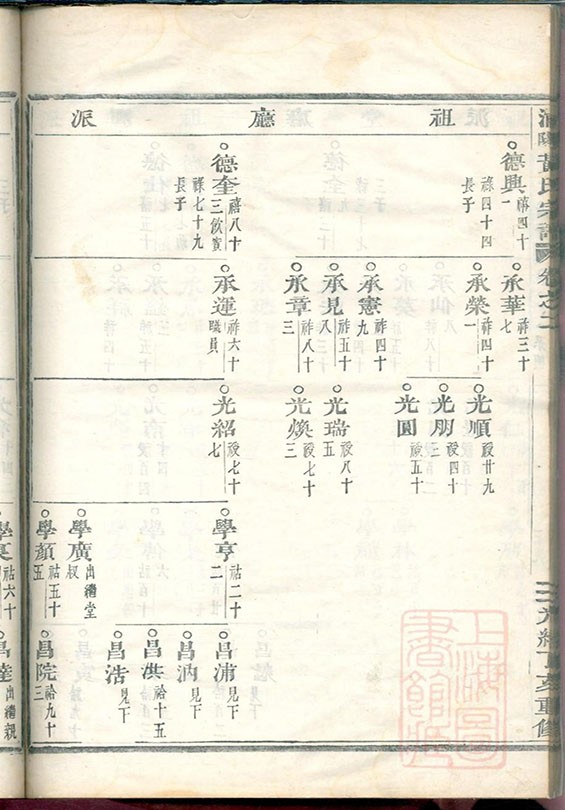 黃氏宗譜
卷之二
光緒丁亥重修
上海圖書館藏
祖
廳
派
德興 禧四十一
祿四十四長子
德奎 禧八十三飲賓
祿七十九長子
承華 祚三十七
承榮 祚四十一
承憲 祚四十九
承見 祚五十八
承章 祚八十三
承運 祚六十一職員
光順 祾廿九
光朋 祾四十三
光圓 祾五十
光瑞 祾八十五
光煥 祾七十三
光紹 祾七十七
學亨 祜二十二
學廣 出繼堂叔
學顏 祜五十五
祜六十
昌浦 見下
昌汭 見下
昌洪 祫十五
昌浩 見下
昌院 祫九十三
昌達 出繼親